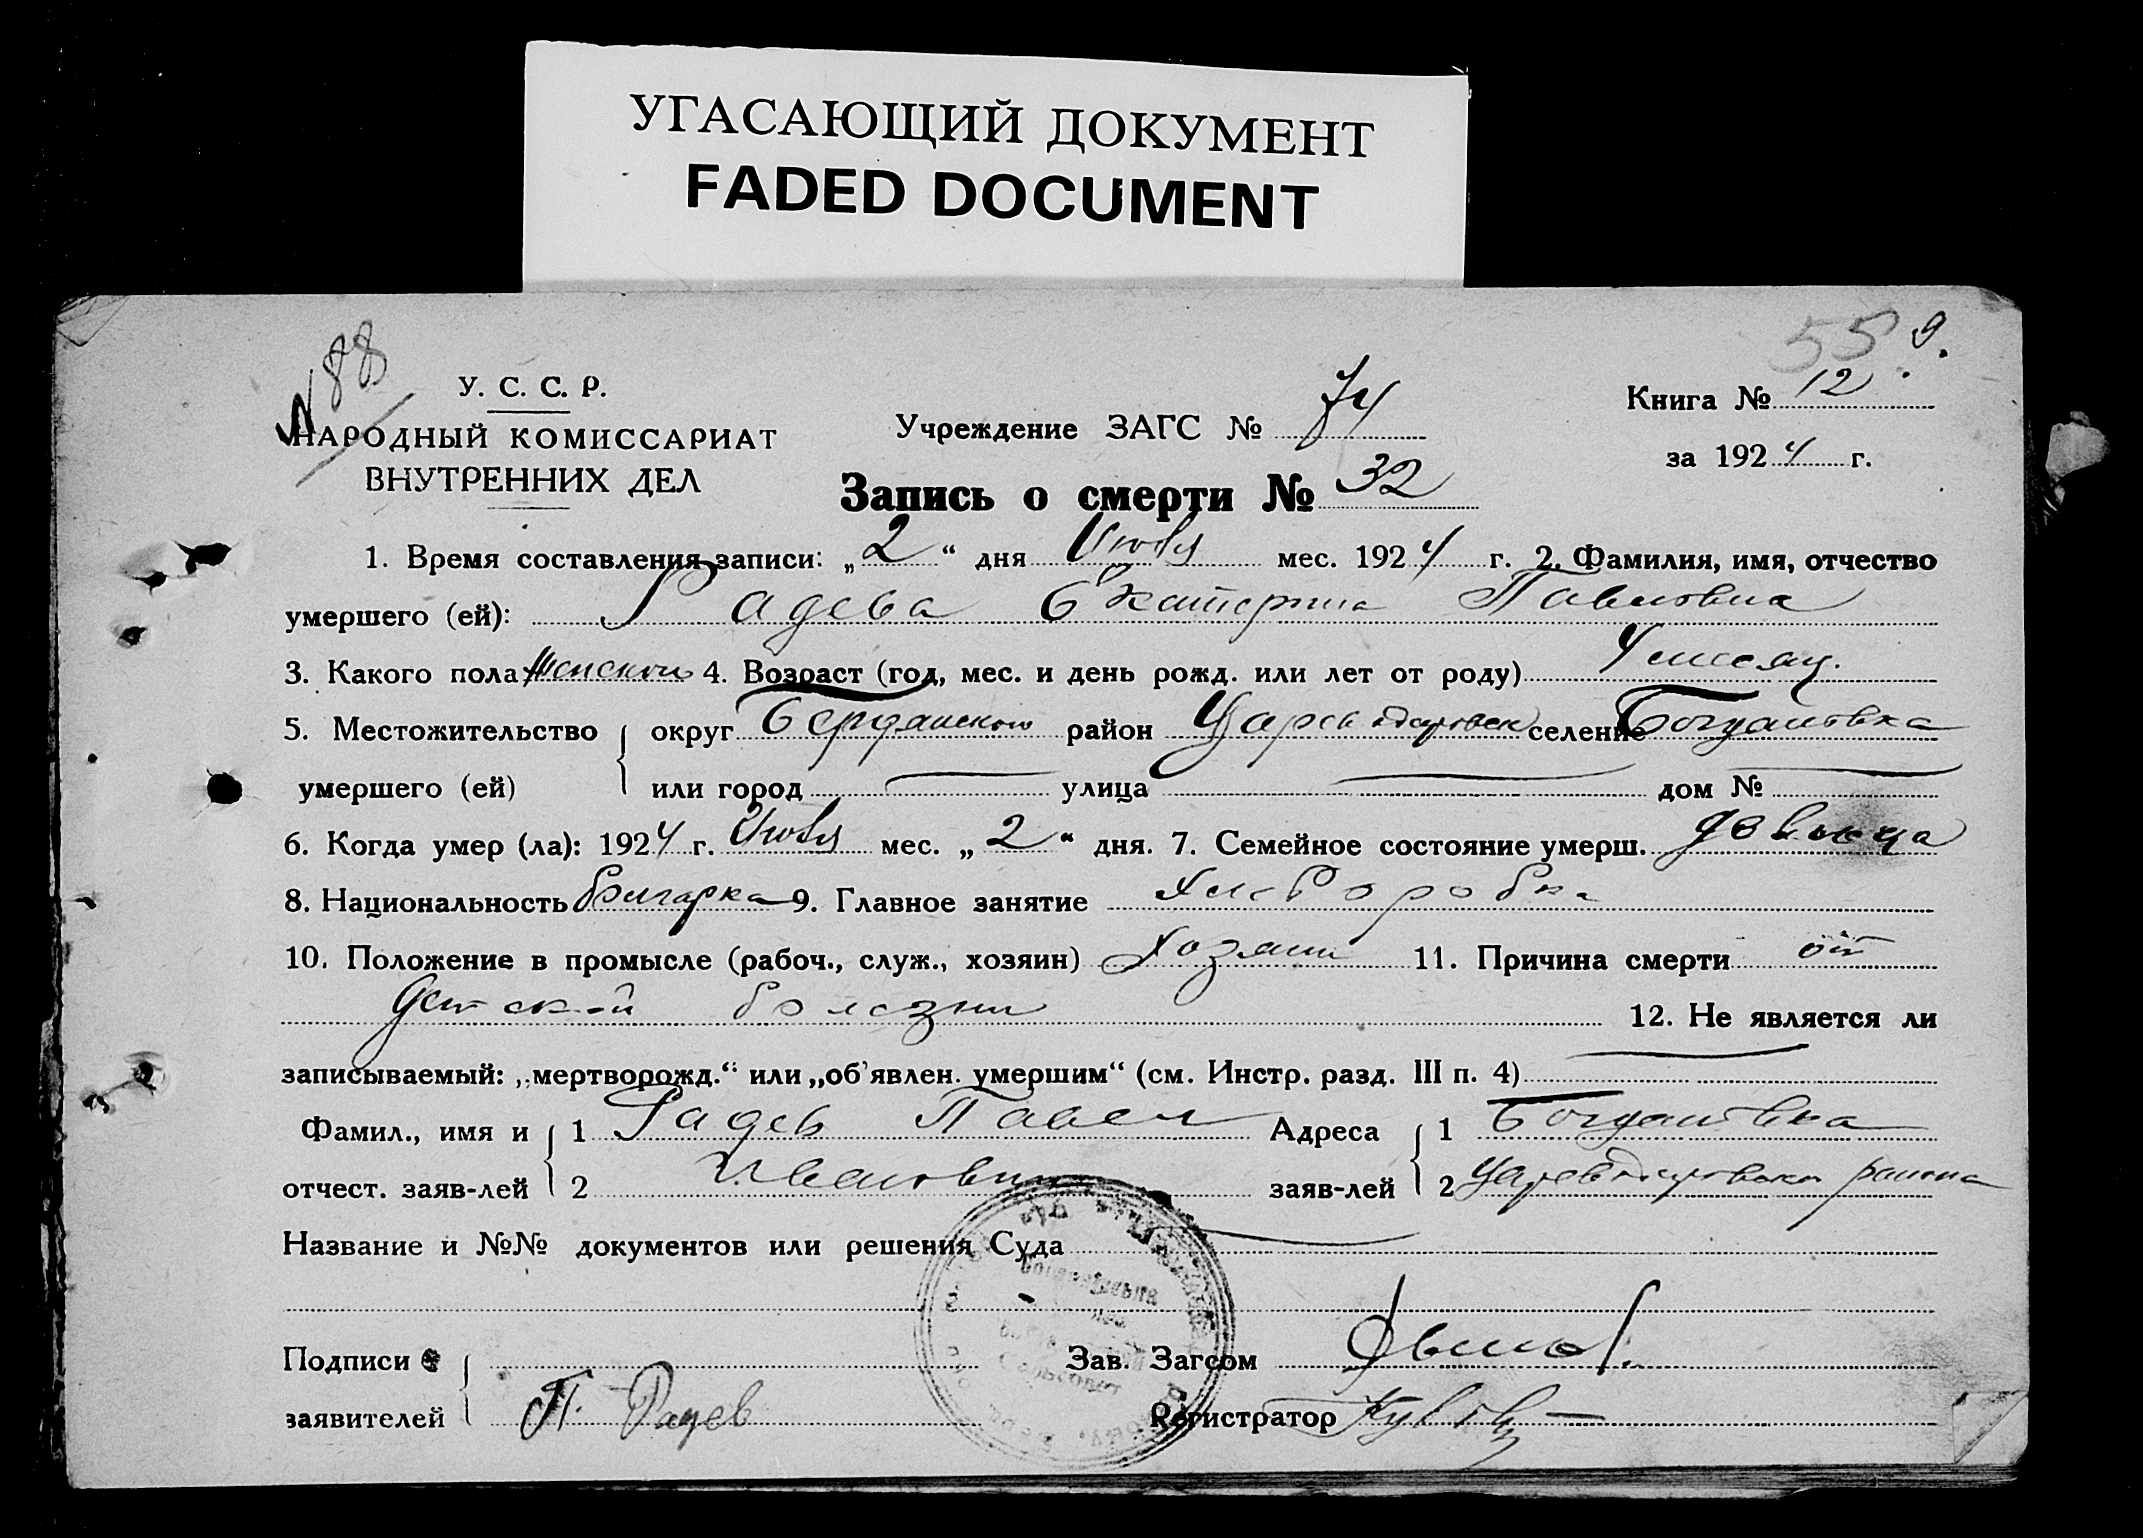 УГАСАЮЩИЙ ДОКУМЕНТ
FADED DOCUMENT
№ 88
55 9.
У. С. С. Р.
НАРОДНЫЙ КОМИССАРИАТ
ВНУТРЕННИХ ДЕЛ
Учреждение ЗАГС № 74
Книга № 12
за 1924 г.
Запись о смерти № 32
1. Время составления записи: „2“ дня Июля мес. 1924 г. 2. Фамилия, имя, отчество
умершего (ей): Радева Екатерина Павловна
3. Какого пола Женского 4. Возраст (год, мес. и день рожд. или лет от роду) 4 месяц.
5. Местожительство округ Бердянского район Цареводаровск селение Богдановка
умершего (ей) или город улица дом №
6. Когда умер (ла): 1924 г. Июля мес. „2“ дня. 7. Семейное состояние умерш. девица
8. Национальность болгарка 9. Главное занятие хлеборобка
10. Положение в промысле (рабоч., служ., хозяин) Хозяин 11. Причина смерти от
детской болезни 12. Не является ли
записываемый: „мертворожд.“ или „об'явлен. умершим“ (см. Инстр. разд. III п. 4)
Фамил., имя и 1 Радев Павел Адреса 1 Богдановка
отчест. заяв-лей 2 Иванович заяв-лей 2 района
Название и №№ документов или решения Суда
Подписи Зав. Загсом
заявителей П. Радев Регистратор